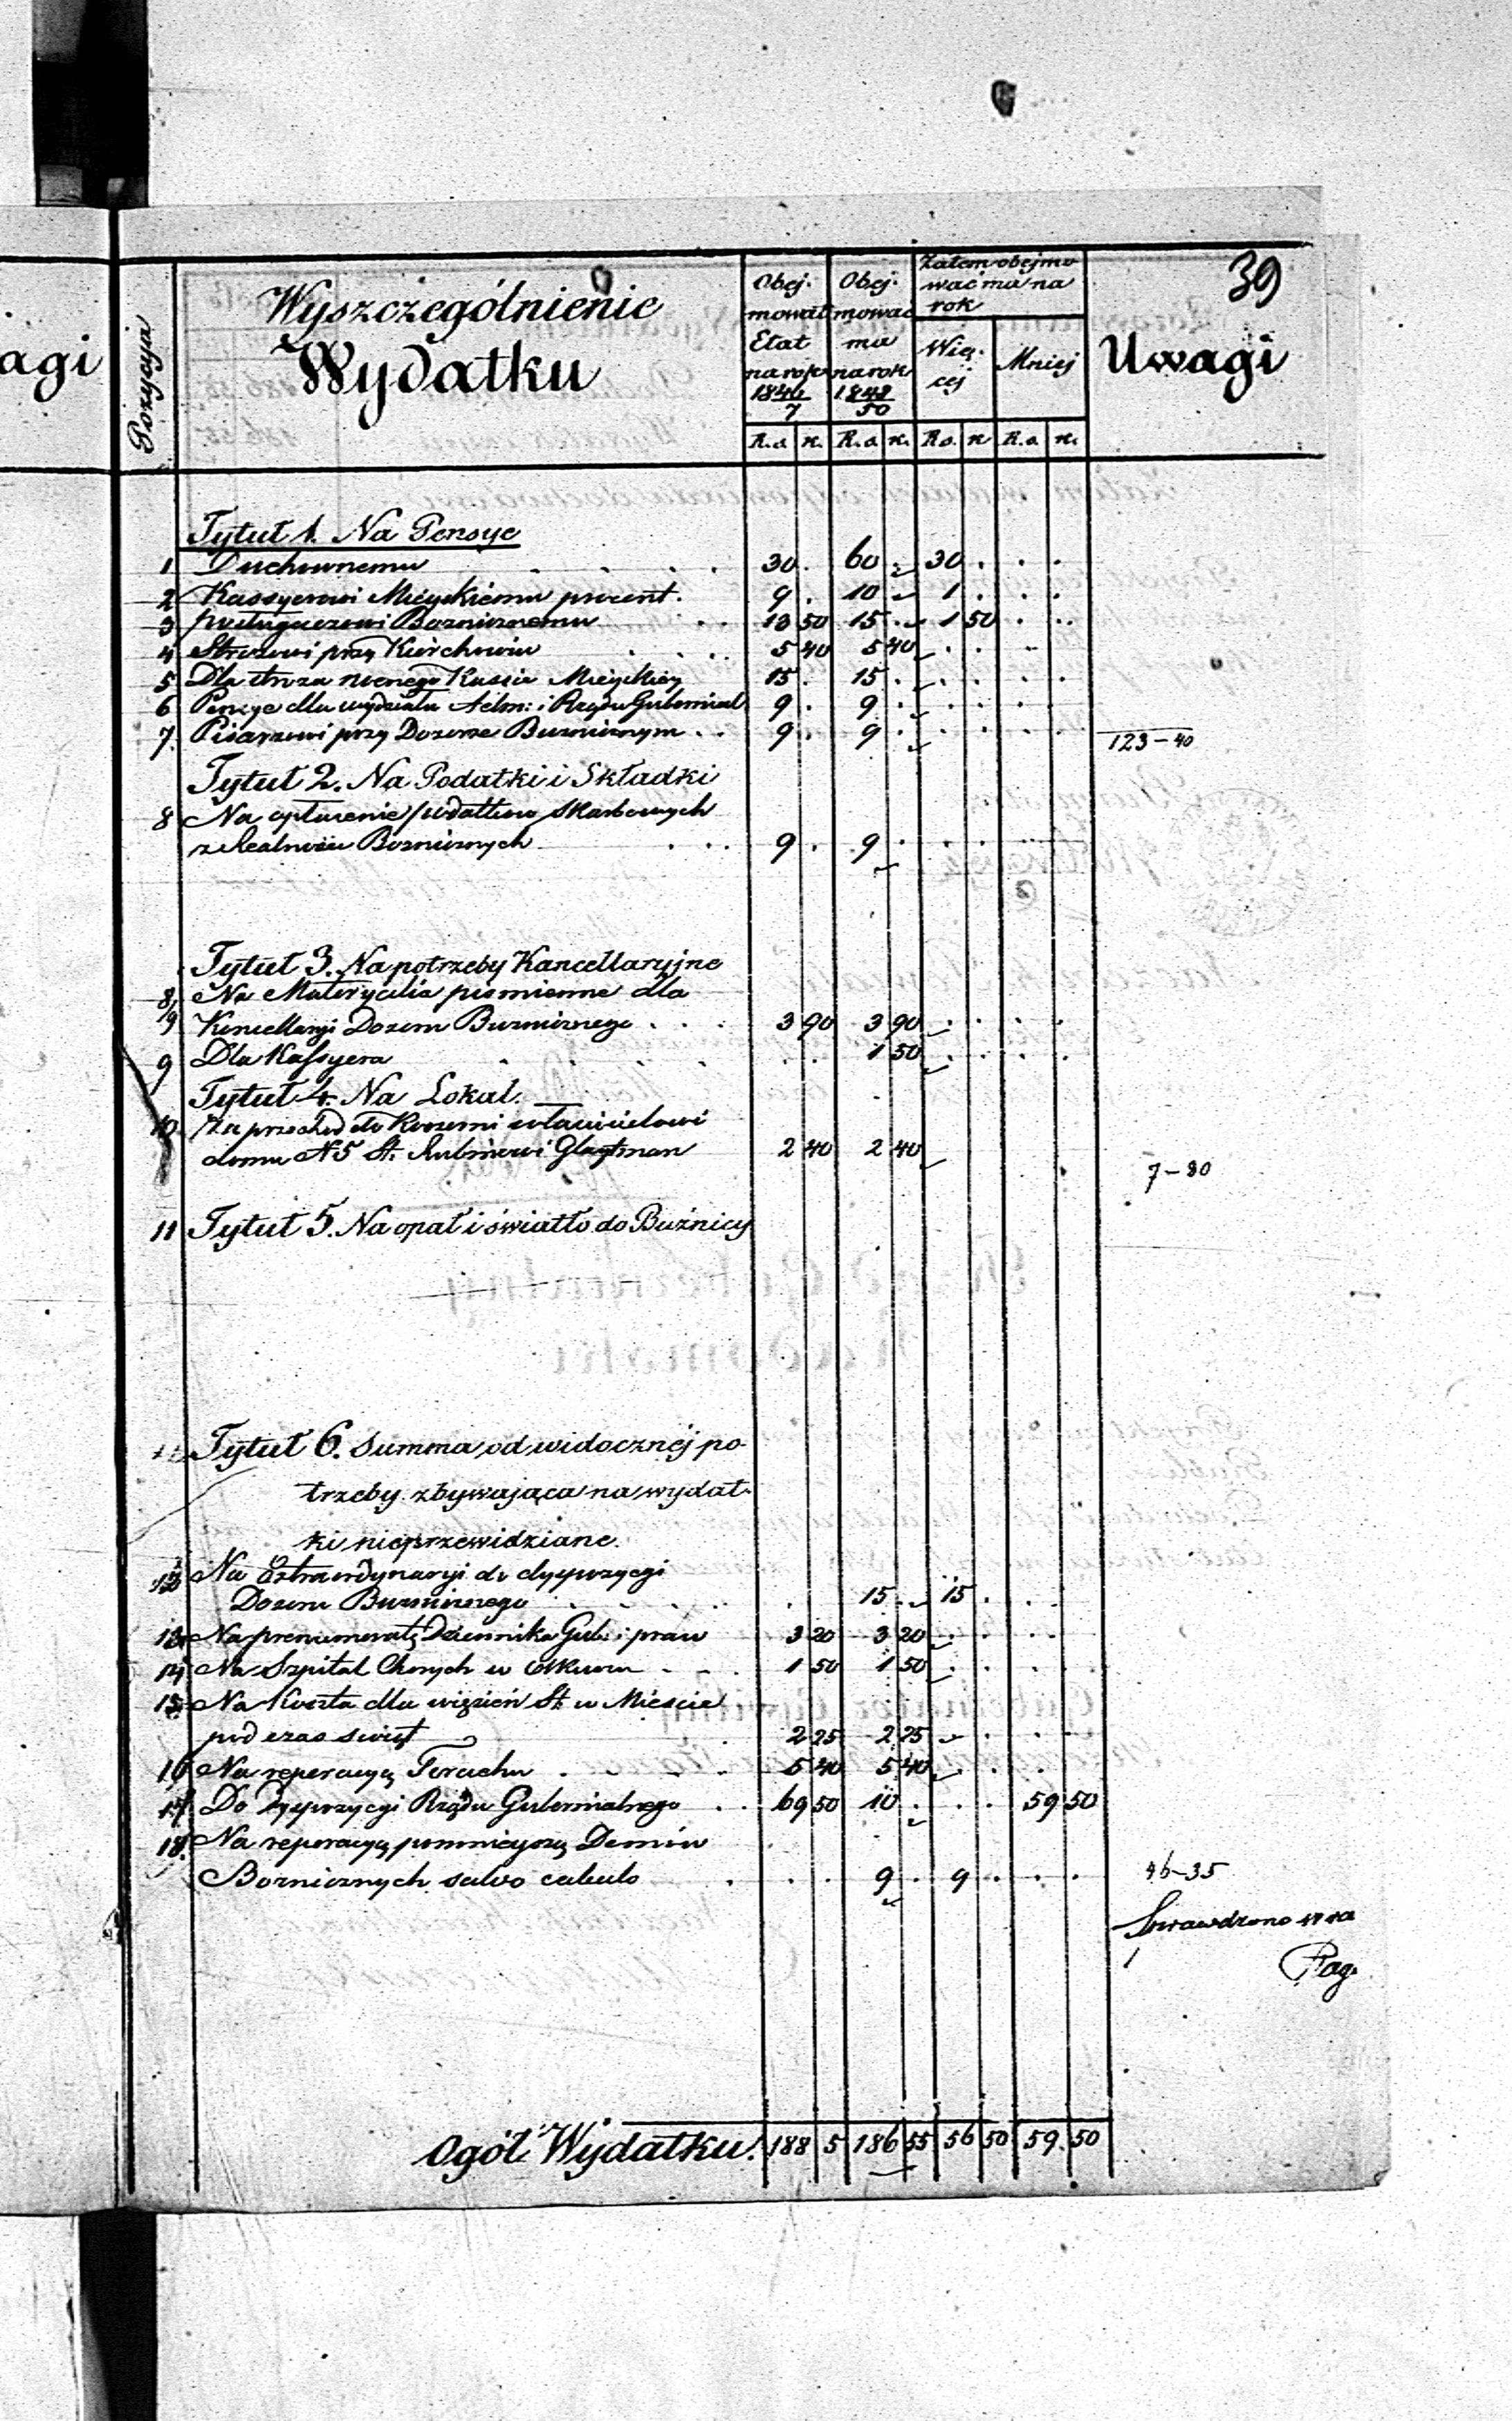 39
agi
Pozycya
Wyszczególnienie
Wydatku
Obej-
mował
Etat
na rok
1846/7
Obej-
mować
ma
na rok
1848/50
Zatem obejmo
wać ma na
rok
Wię-
cej
Mniej
Uwagi
R.s. k. R.s. k. R.s. k. R.s. k.
Tytuł 1. Na Pensye
1 Duchownemu 30 . 60 . 30 . . .
2 Kassyerowi Mieyskiemu procent. 9 . 10 . 1 . . .
3 posługaczowi Boznicznemu 13 50 15 . 1 50 . .
4 Stróżowi przy Kierchowie 5 40 5 40 . . .
5 Dla stróza nocnego Kassie Mieyskiey 15 . 15 . . . . .
6 Pensye dla wydziału Adm: i Rządu Gubernial 9 . 9 . . . . .
7. Pisarzowi przy Dozorze Bużnicznym 9 . 9 . . . . . 123-40
Tytuł 2. Na Podatki i Składki
8 Na opłacenie podatków skarbowych
z Realności Bozniczych 9 . 9 . . . . .
Tytuł 3. Na potrzeby Kancellaryjne
8, Na Materyalia piśmienne dla
9 Kancellaryi Dozoru Bużnicznego 3 90 3 90 . . . .
9 Dla Kassyera . . 1 50 . . . .
Tytuł 4. Na Lokal.
10 Za przechod do Rozerni właścicielowi
domu N 5 St. Rubinowi Glaytman 2 40 2 40
7-80
11 Tytuł 5. Na opał i światło do Buźnicy
Tytuł 6. Summa od widocznéj po-
trzeby zbywająca na wydat-
ki nieprzewidziane.
12 Na Extraordynaryi do dyspozycyi
Dozoru Bużnicznego . 15 . 15 . . .
13 Na prenumeratę Dziennika Gub. i praw 3 20 3 20 . . . .
14 Na Szpital Chorych w Olkuszu 1 50 1 50 . . . .
15 Na Koszta dla więzień St. w Mieście
pod czas świąt 2 25 2 25 . . . .
16 Na reperacyą 5 40 5 40 . . .
17 Do Dyspozycyi Rządu Gubernialnego 69 50 10 . . . 59 50
18. Na reperacyą pomnieyszą Domów
Bozniczych salvo calculo . . 9 . 9 . . . 46-35
Sprawdzono
Ogół Wydatku. 188 5 186 55 56 50 59 50